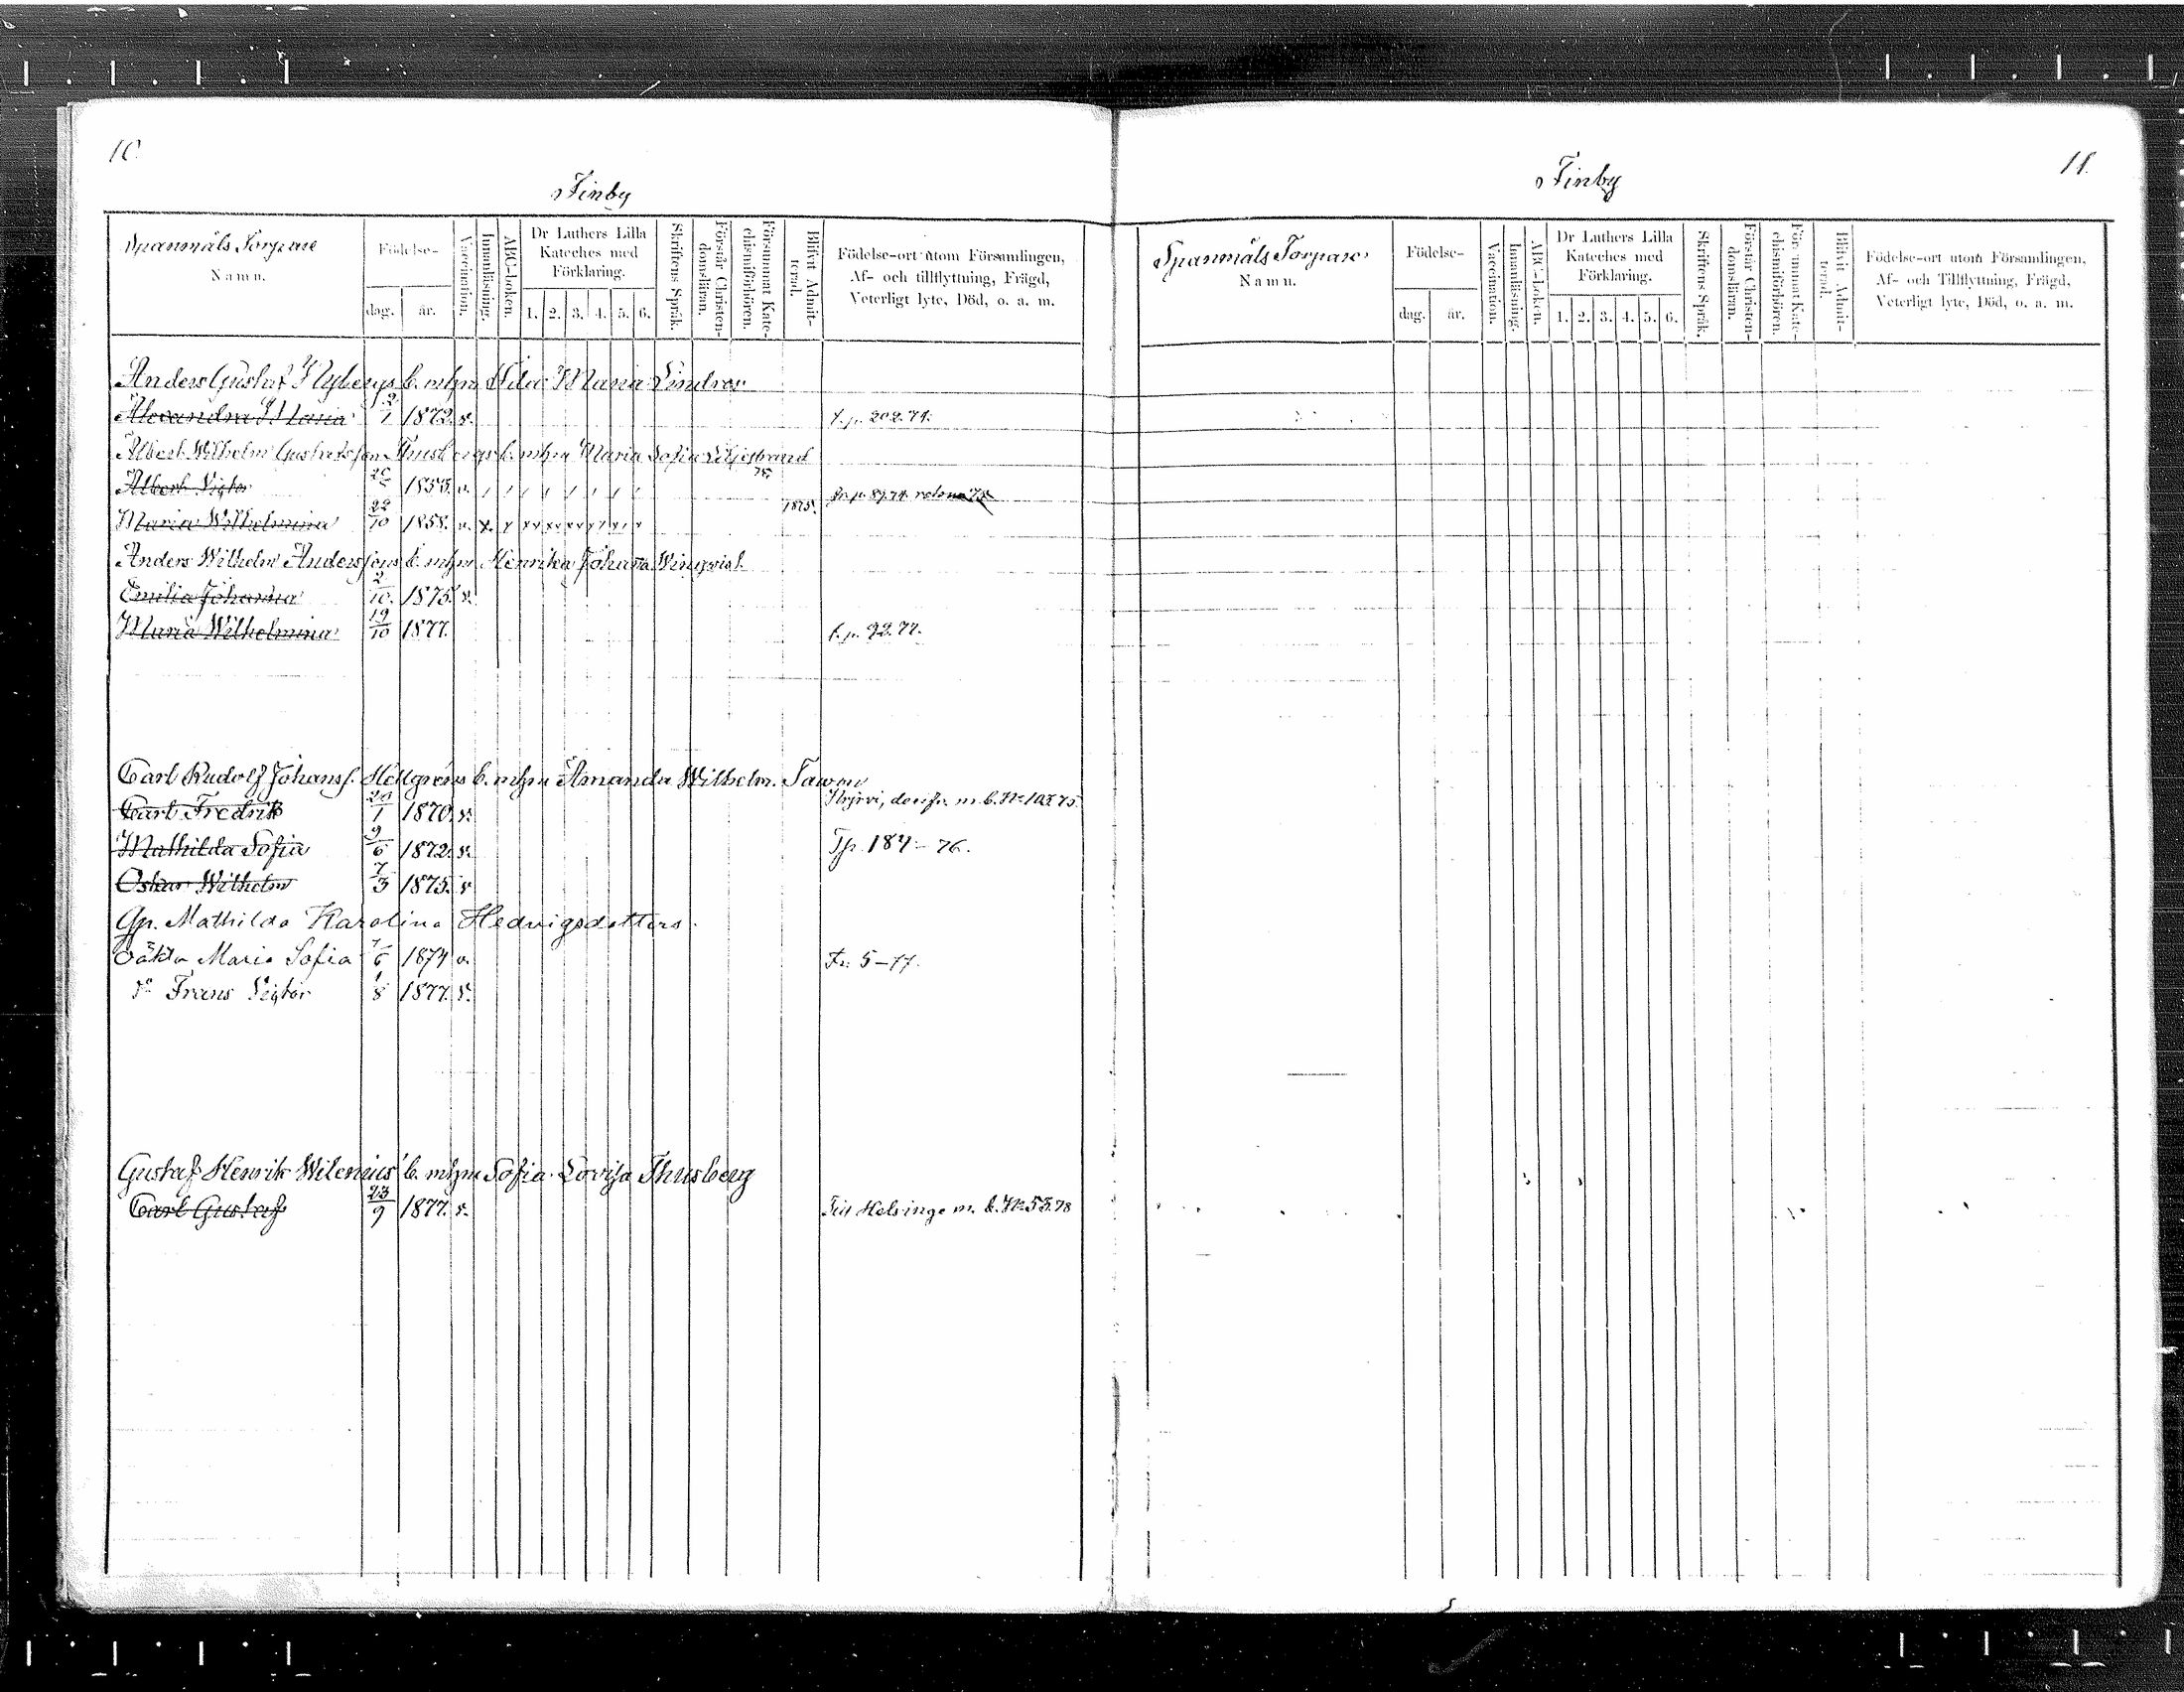 10.
Finby
Spanmåls Torpare
Namn.
Födelse-
dag. år.
Vaccination.
Innanläsning.
ABC-boken.
Dr Luthers Lilla
Kateches med
Förklaring.
1. 2. 3. 4. 5. 6.
Skriftens Språk.
Förstår Christen-
domsläran.
Försummat Kate-
chismiförhören.
Blifvit Admit-
terad.
Födelse-ort utom Församlingen,
Af- och tillflyttning, Frägd,
Veterligt lyte, Död, o. a. m.
Anders Gustaf Nybergs b. m. hm Maria Lindros
Alexandra Maria 1872. v. f. p. 202. 74.
Albert Wilhelm Gustafsson Thusbergs b. mhm Maria Sofia Liljestrand
Albert Victor v. / / / / / / / /
Maria Wilhelmina 22/10 1858. v. x x xx xx xx 1875.
Anders Wilhelm Anderssons b. mhm Henrika Johana Winqvist
Emilia Johanna 2/10. 1875. v.
Maria Wilhelmina 19/10 1877. f. p. 92. 77.
Carl Rudolf Johanss. Hellgrens b. mhm Amanda Wilhelm. Tawon
Carl Fredrik 20/1 1870. v. m. b. No 103. 75.
Mathilda Sofia 9/6 1872. v. Tp. 184 - 76.
Oskar Wilhelm 7/3 1875. v.
Gp. Mathilda Karolina Hedvigsdotters.
Oäkta Maria Sofia 7/6 1874 v. Fr. 5-77.
do Frans Victor 1/8 1877. v.
Gustaf Henrik Wilenius' b. mhm Sofia Lovisa Thusberg
Carl Gustaf 23/9 1877. v. Till Helsinge m. b. No 53. 78
11.
Finby
Spanmåls Torpare
Namn.
Födelse-
dag. år.
Vaccination.
Innanläsning.
ABC-boken.
Dr Luthers Lilla
Kateches med
Förklaring.
1. 2. 3. 4. 5. 6.
Skriftens Språk.
Förstår Christen-
domsläran.
Försummat Kate-
chismiförhören.
Blifvit Admit-
terad.
Födelse-ort utom Församlingen,
Af- och Tillflyttning, Frägd,
Veterligt lyte, Död, o. a. m.